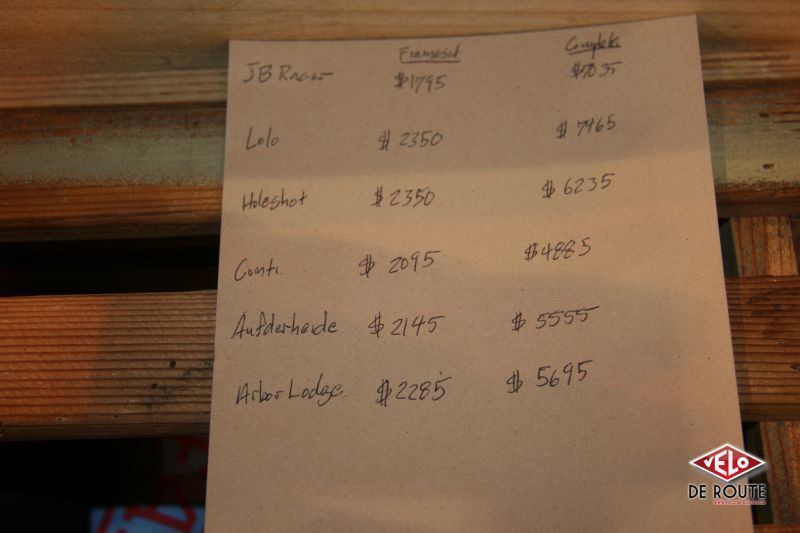 Frameset Complete
JB Racer $1795 $7035
Lolo $2350 $7965
Holeshot $2350 $6235
Conti. $2095 $4885
Aufderheide $2145 $5555
Arbor Lodge $2285 $5695
VELO
DE ROUTE